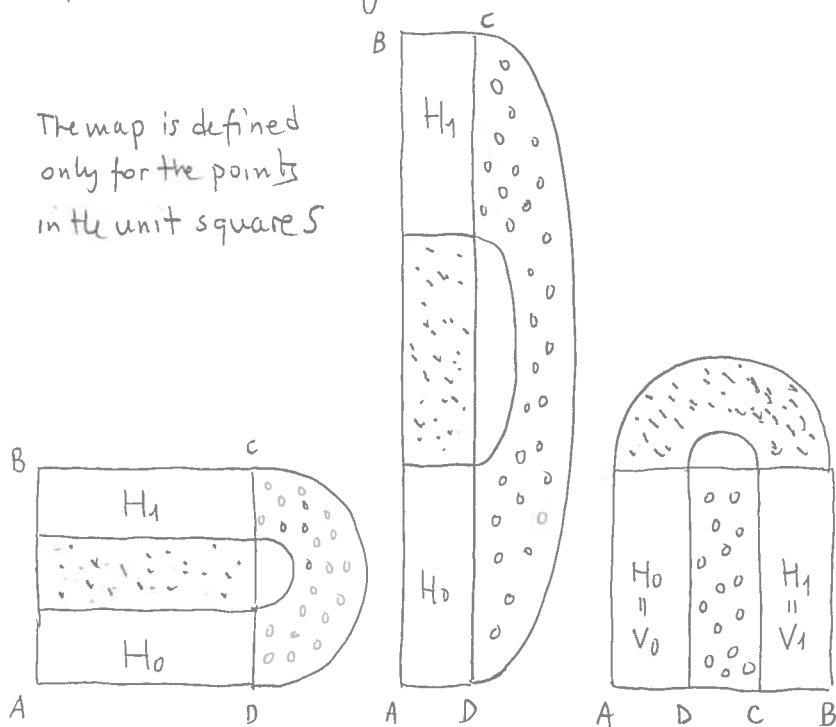 The map is defined
only for the points
in the unit square S
B
C
H1
H0
A
D
B
C
H1
H0
A
D
H0
=
V0
H1
=
V1
A
D
C
B